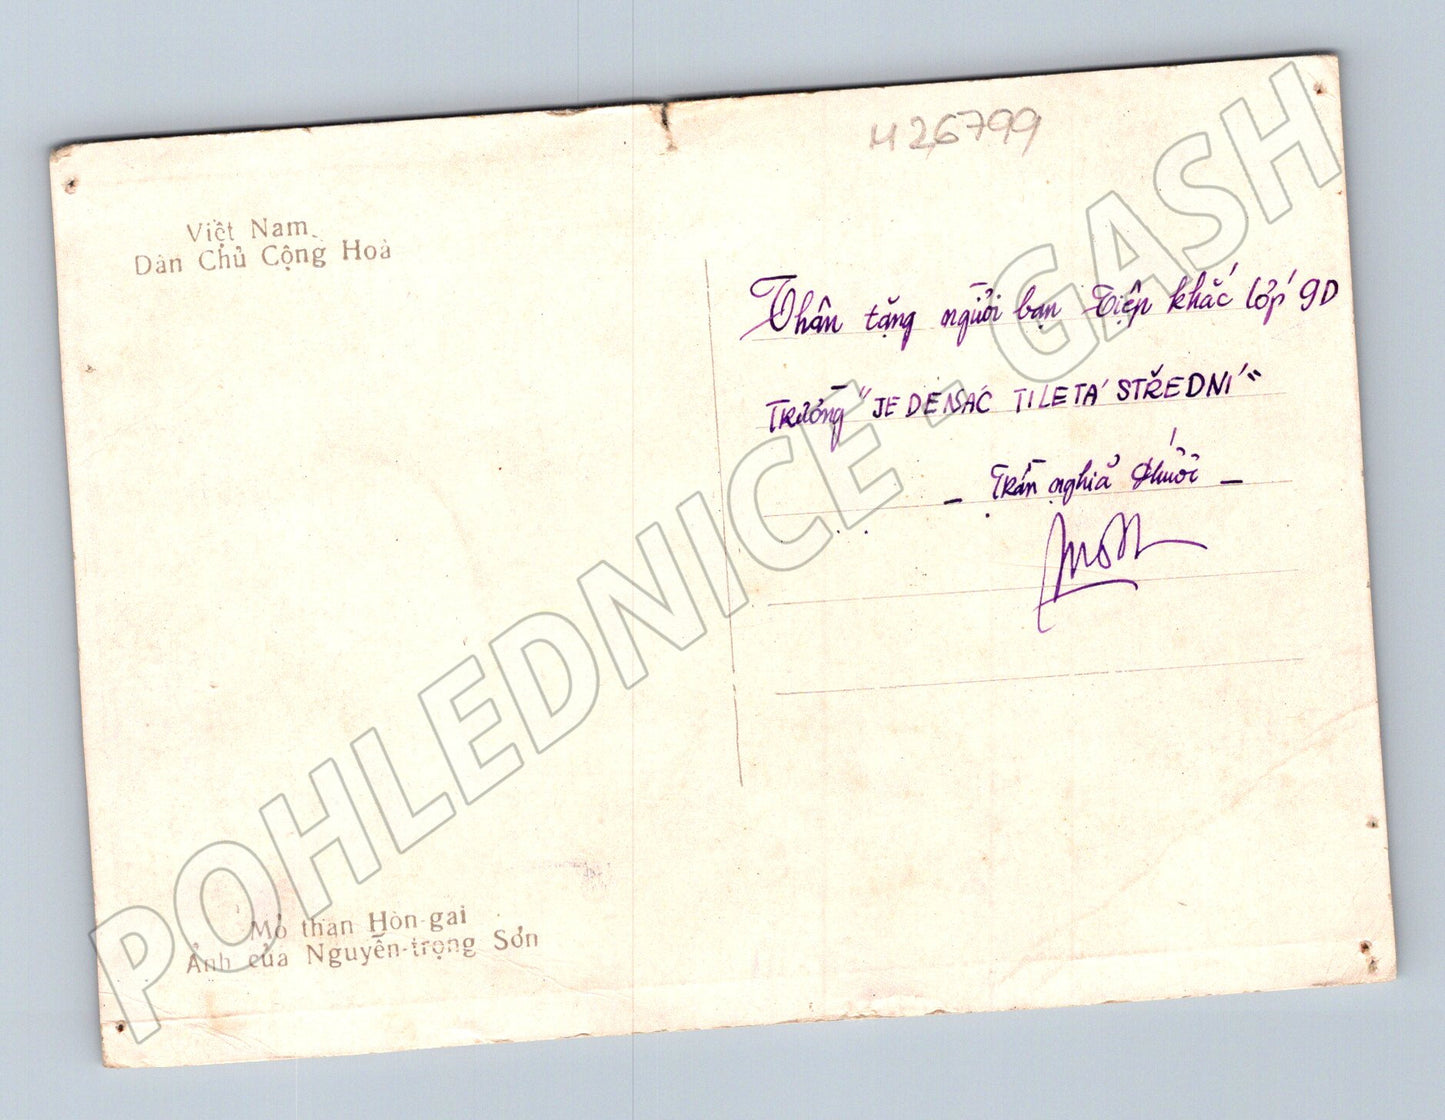 M26799
Việt Nam
Dân Chủ Cộng Hoà
Thân tặng người bạn Tiệp khắc lớp 9D
Trường "JEDENÁCTILETÁ STŘEDNÍ"
- Trần nghĩa
Mỏ than Hòn-gai
Ảnh của Nguyễn-trọng Sơn
POHLEDNICE - GASH